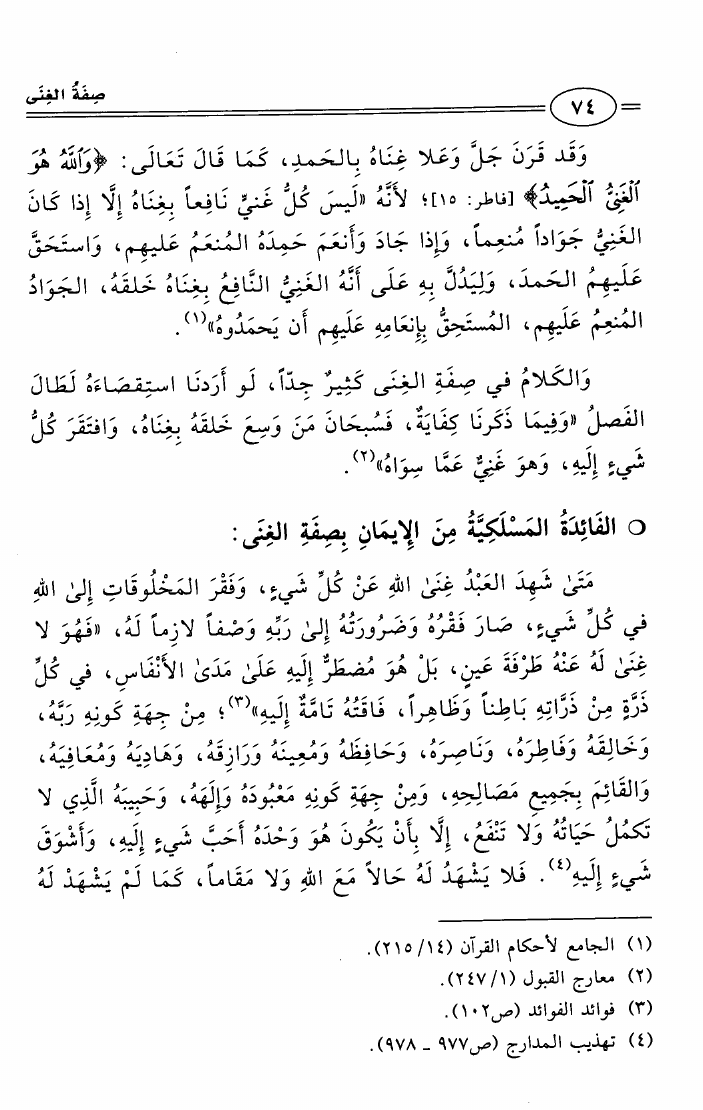 صِفَةُ الغِنَى
٧٤
وَقَد قَرَنَ جَلَّ وَعَلا غِنَاهُ بِالحَمدِ، كَمَا قَالَ تَعَالَى: ﴿وَٱللَّهُ هُوَ
ٱلْغَنِيُّ ٱلْحَمِيدُ﴾ [فاطر: ١٥]؛ لأَنَّهُ «لَيسَ كُلُّ غَنيٍّ نَافِعاً بِغِنَاهُ إِلَّا إِذا كَانَ
الغَنِيُّ جَوَاداً مُنعِماً، وَإِذا جَادَ وَأَنعَمَ حَمِدَهُ المُنعَمُ عَليهِم، وَاستَحَقَّ
عَلَيهِمُ الحَمدَ، وَلِيَدُلَّ بِهِ عَلَى أَنَّهُ الغَنِيُّ النَّافِعُ بِغِنَاهُ خَلقَهُ، الجَوَادُ
المُنعِمُ عَلَيهِم، المُستَحِقُّ بِإِنعَامِهِ عَلَيهِم أَن يَحمَدُوهُ»(١).
وَالكَلَامُ في صِفَةِ الغِنَى كَثِيرٌ جِدّاً، لَو أَرَدنَا استِقصَاءَهُ لَطَالَ
الفَصلُ «وَفِيمَا ذَكَرنَا كِفَايَةٌ، فَسُبحَانَ مَن وَسِعَ خَلقَهُ بِغِنَاهُ، وَافتَقَرَ كُلُّ
شَيءٍ إِلَيهِ، وَهوَ غَنِيٌّ عَمَّا سِوَاهُ»(٢).
○ الفَائِدَةُ المَسْلَكِيَّةُ مِنَ الإِيمَانِ بِصِفَةِ الغِنَى:
مَتَىٰ شَهِدَ العَبْدُ غِنَىٰ اللهِ عَنْ كُلِّ شَيءٍ، وَفَقْرَ المَخْلُوقَاتِ إِلىٰ اللهِ
في كُلِّ شَيءٍ، صَارَ فَقْرُهُ وَضَرُورَتُهُ إِلىٰ رَبِّهِ وَصْفاً لازِماً لَهُ، «فَهُوَ لا
غِنَىٰ لَهُ عَنْهُ طَرْفَةَ عَينٍ، بَلْ هُوَ مُضطَرٌّ إِلَيهِ عَلَىٰ مَدَىٰ الأَنْفَاسِ، في كُلِّ
ذَرَّةٍ مِنْ ذَرَّاتِهِ بَاطِناً وَظَاهِراً، فَاقَتُهُ تَامَّةٌ إِلَيهِ»(٣)؛ مِنْ جِهَةِ كَونِهِ رَبَّهُ،
وَخَالِقَهُ وَفَاطِرَهُ، وَنَاصِرَهُ، وَحَافِظَهُ وَمُعِينَهُ وَرَازِقَهُ، وَهَادِيَهُ وَمُعَافِيَهُ،
وَالقَائِمَ بِجَمِيعِ مَصَالِحِهِ، وَمِنْ جِهَةِ كَونِهِ مَعْبُودَهُ وَإِلَهَهُ، وَحَبِيبَهُ الَّذِي لا
تَكمُلُ حَيَاتُهُ وَلا تَنْفَعُ، إِلَّا بِأَنْ يَكُونَ هُوَ وَحْدَهُ أَحَبَّ شَيءٍ إِلَيهِ، وَأَشْوَقَ
شَيءٍ إِلَيهِ(٤). فَلا يَشْهَدُ لَهُ حَالاً مَعَ اللهِ وَلا مَقَاماً، كَمَا لَمْ يَشْهَدْ لَهُ
(١) الجامع لأحكام القرآن (٢١٥/١٤).
(٢) معارج القبول (٢٤٧/١).
(٣) فوائد الفوائد (ص١٠٢).
(٤) تهذيب المدارج (ص٩٧٧ ـ ٩٧٨).